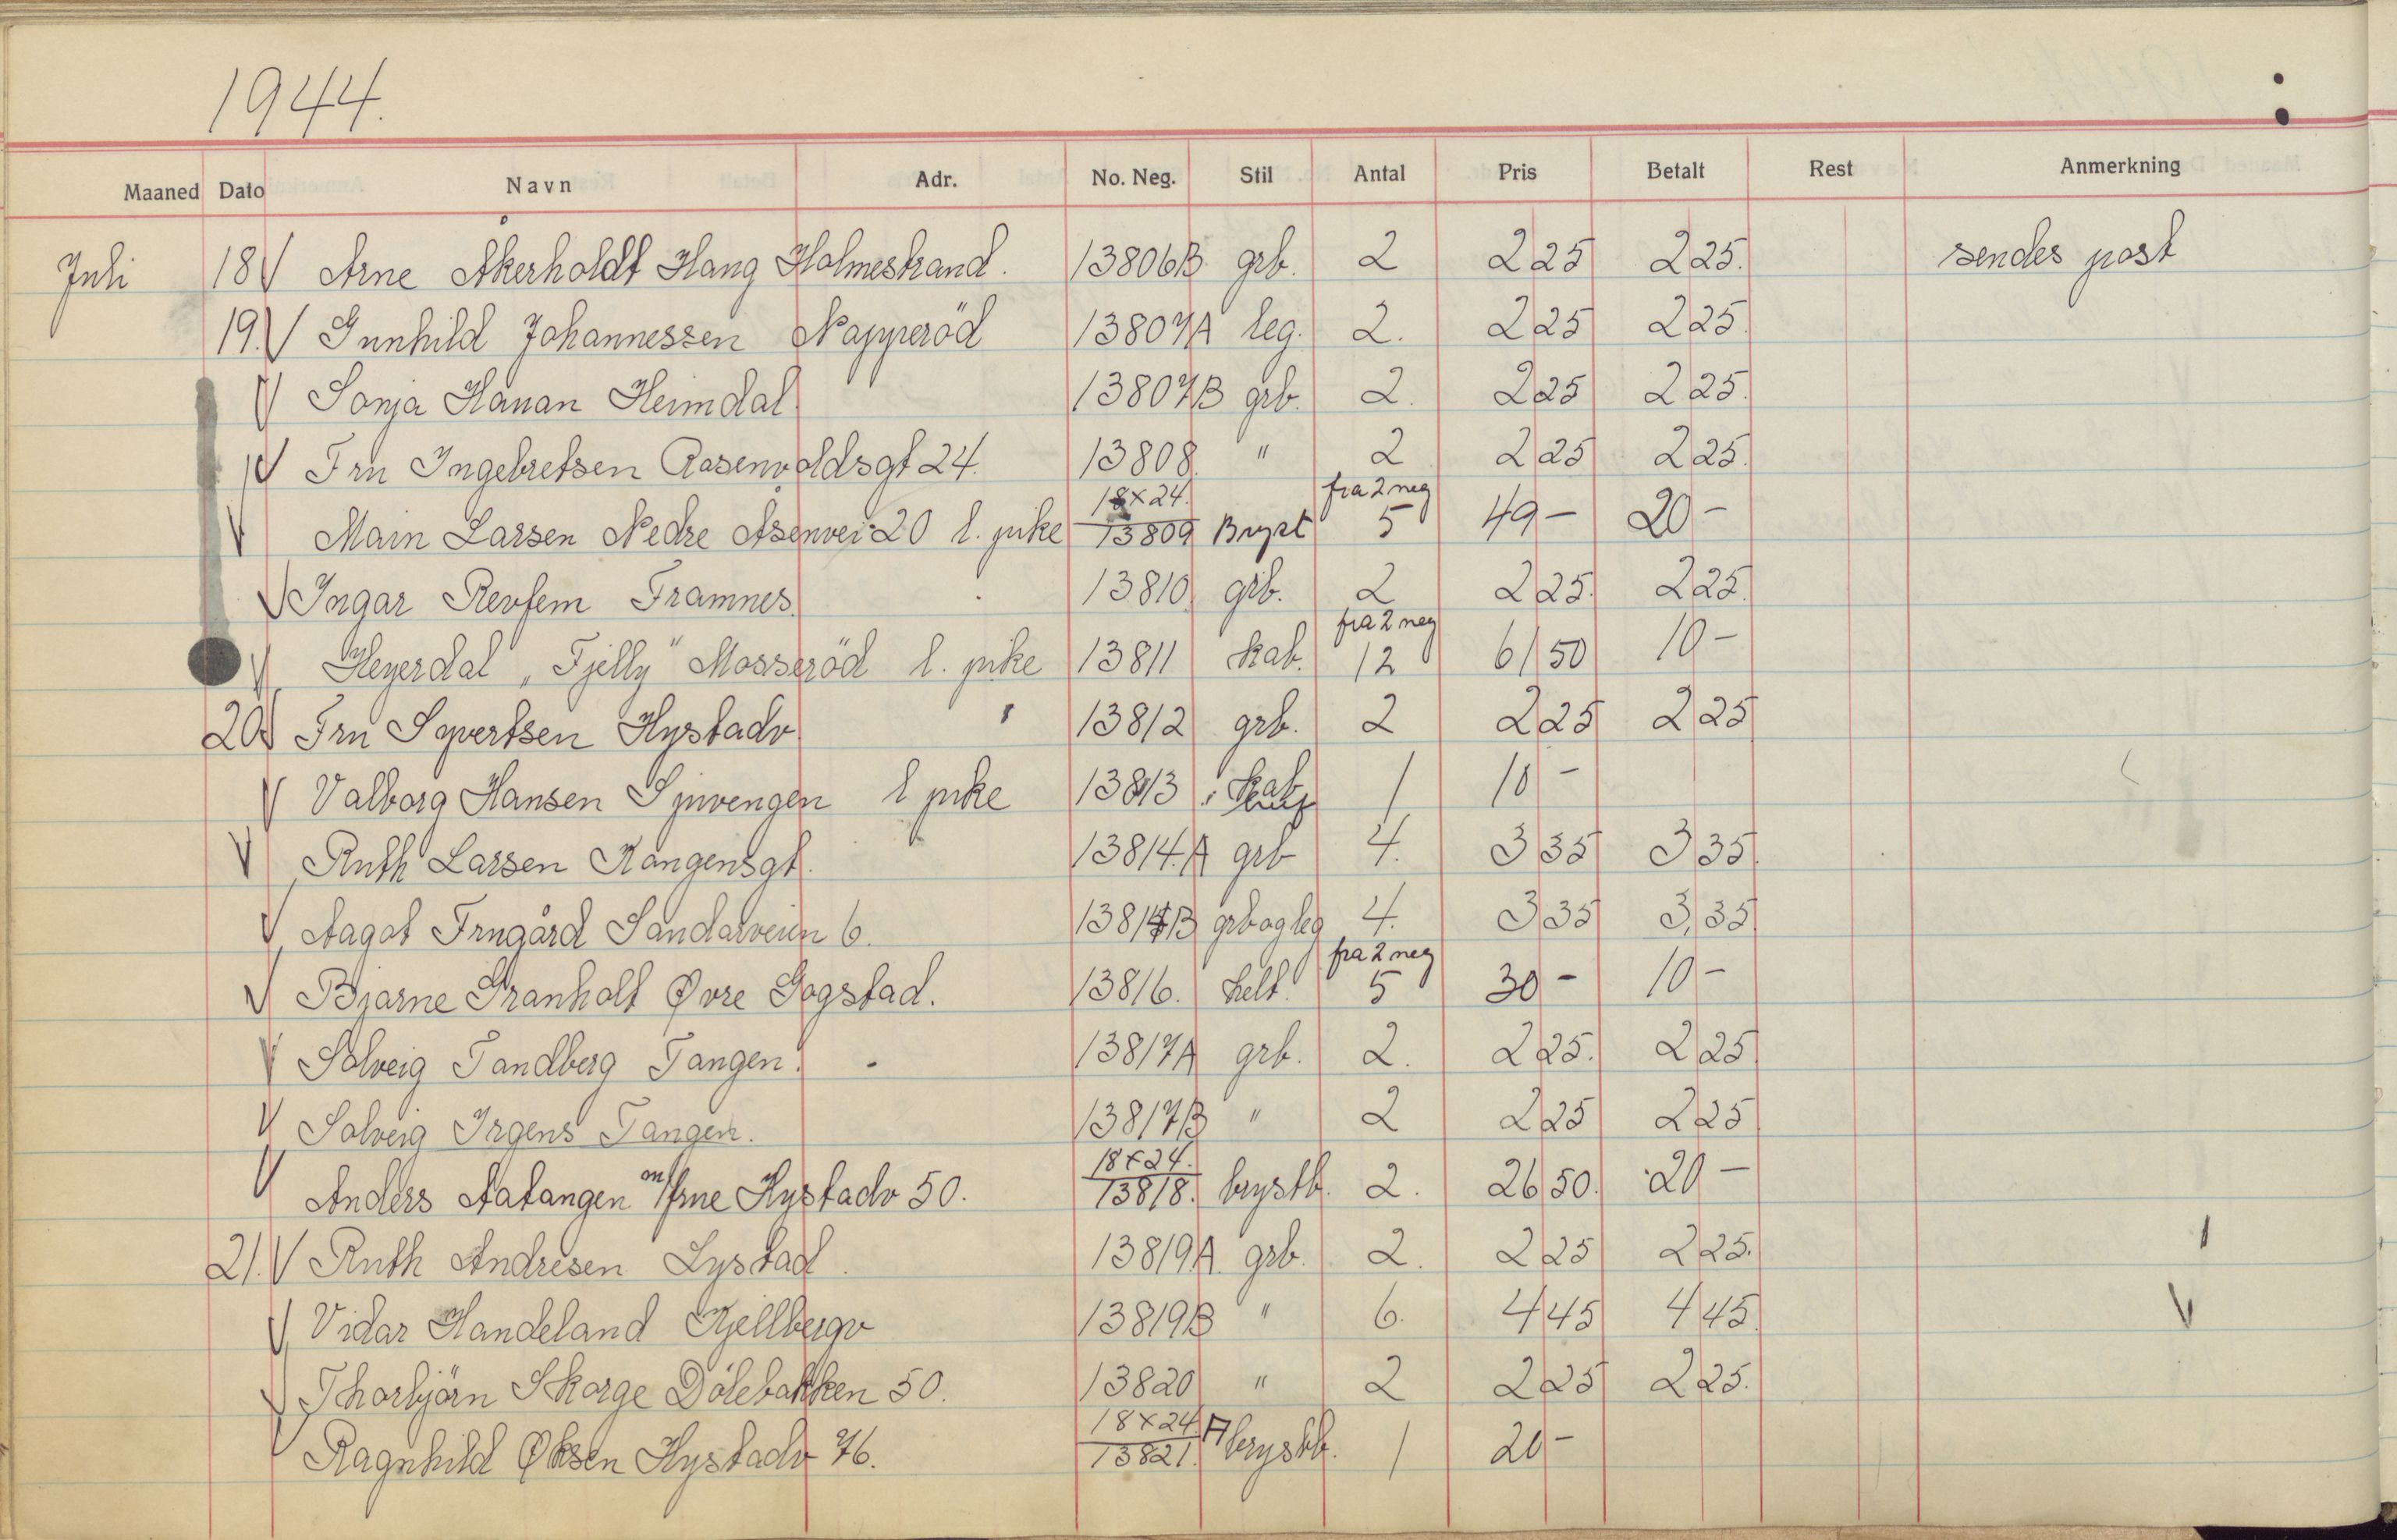 1944.
Maaned Dato Navn Adr. No. Neg. Stil Antal Pris Betalt Rest Anmerkning
Juli 18 V Arne Åkerholdt Haug Holmestrand. 13806B grb. 2 2 25 2 25. sendes post
19. V Gunhild Johannessen Napperöd 13807A leg. 2. 2 25 2 25.
V Sonja Hauan Heimdal 13807B grb. 2. 2 25 2 25.
V Fru Ingebretsen Rosenvoldsgt 24. 13808 " 2 2 25 2 25.
V Main Larsen Nedre Åsenvei 20 l. pike 18x24. 13809 Bryst fra 2 neg 5 49 - 20 -
V Ingar Revfem Framnes. 13810 grb. 2 2 25. 2 25.
V Heyerdal „Fjelly" Mosseröd l. pike 13811 kab. fra 2 neg 12 61 50 10 -
20. V Fru Syvertsen Hystadv 13812 grb. 2 2 25 2 25
V Valborg Hansen Sjuvengen l pike 13813 kab 1 10 -
V Ruth Larsen Kongensgt. 13814.A grb 4. 3 35 3 35.
V Aagot Frugård Sandarveien 6. 13814B grb og leg 4. 3 35 3,35
V Bjarne Granholt Øvre Gogstad. 13816. helt. fra 2 neg 5 30 - 10 -
V Solveig Tandberg Tangen. 13817A grb. 2. 2 25. 2 25
V Solveig Irgens Tangen. 13817B " 2 2 25 2 25
V Anders Aatangen m/frue Hystadv 50. 18x24. 13818. brystb. 2. 26 50. 20 -
21. V Ruth Andresen Lystad. 13819A. grb. 2. 2 25 2 25.
V Vidar Handeland Kjellbergv 13819B " 6. 4 45 4 45. V
V Thorbjörn Skorge Dölebakken 50. 13820 " 2 2 25 2 25.
V Ragnhild Øksen Hystadv 76. 18x24. 13821. A brystb. 1 20 -